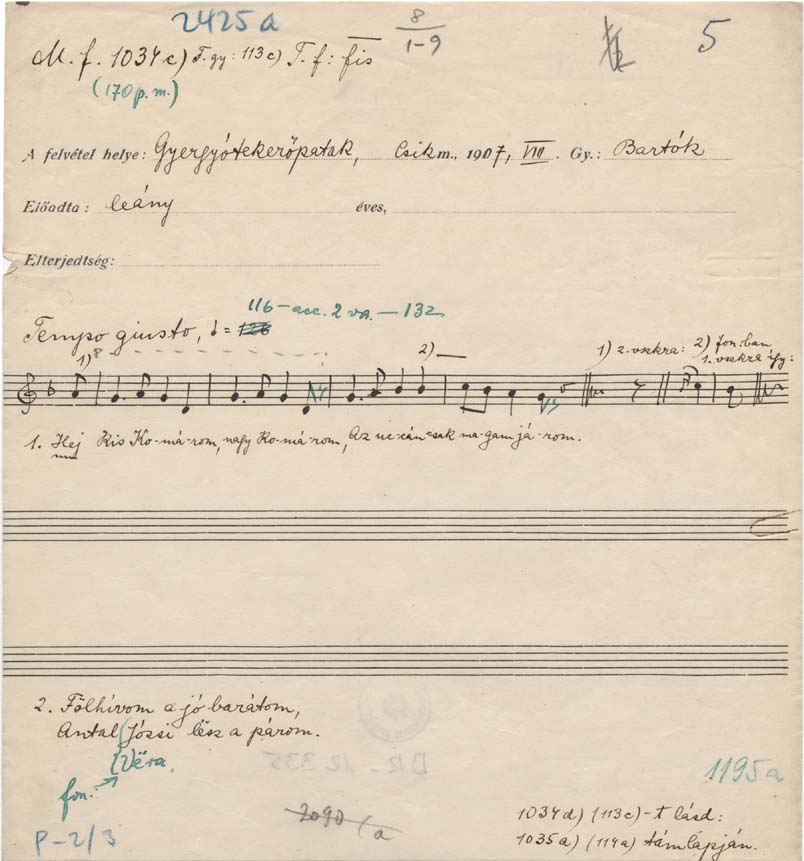 2425 a
8
1-9
5
M. f. 1034 c) T. gy: 113 c) T. f: fis
(170 p. m.)
A felvétel helye: Gyergyótekerőpatak, Csik m., 1907, VIII. Gy.: Bartók
Előadta: leány éves,
Elterjedtség:
116 – acc. 2 va. – 132
Tempo giusto, ♩ = 126
1) 8
2)
1) 2. vszkra:
2) fon:ban
1. vszkra így:
1. Hej Kis Ko-má-rom, nagy Ko-má-rom, Az uc-cán csak ma-gam já-rom.
2. Fölhívom a jó barátom,
Antal Józsi lësz a párom.
(Vëra
fon:
1195 a
BR - 12 335
2090/a
P-2/3
1034 d) (113 c)-t lásd:
1035 a) (114 a) támlapján.